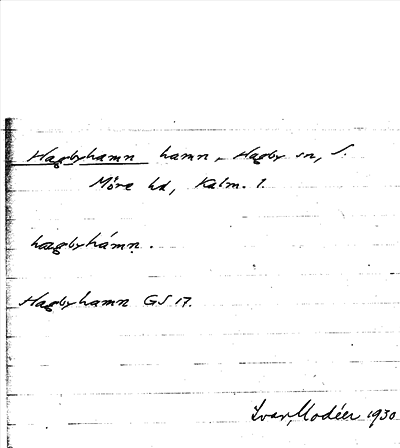 Hagbyhamn hamn, Hagby sn, S.
Möre hd, Kalm. l.
hagbyhámn.
Hagbyhamn GS 17.
Ivar Modéer 1930